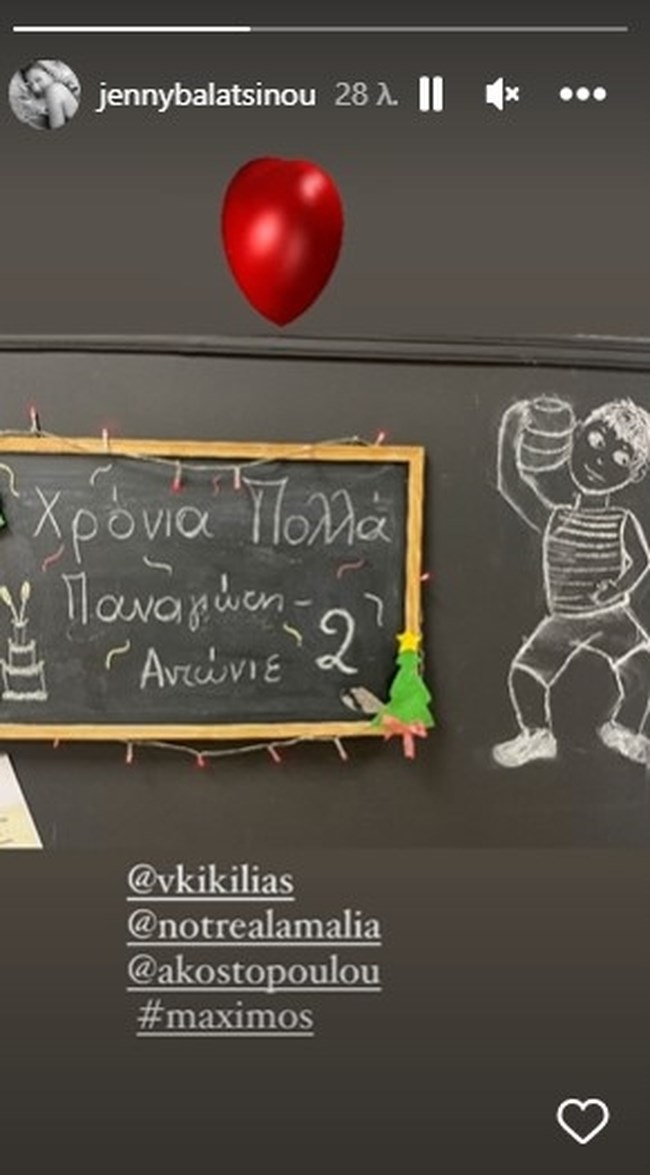 jennybalatsinou 28 λ.
Χρόνια Πολλά
Παναγιώτη-
Αντώνιε 2
@vkikilias
@notrealamalia
@akostopoulou
#maximos